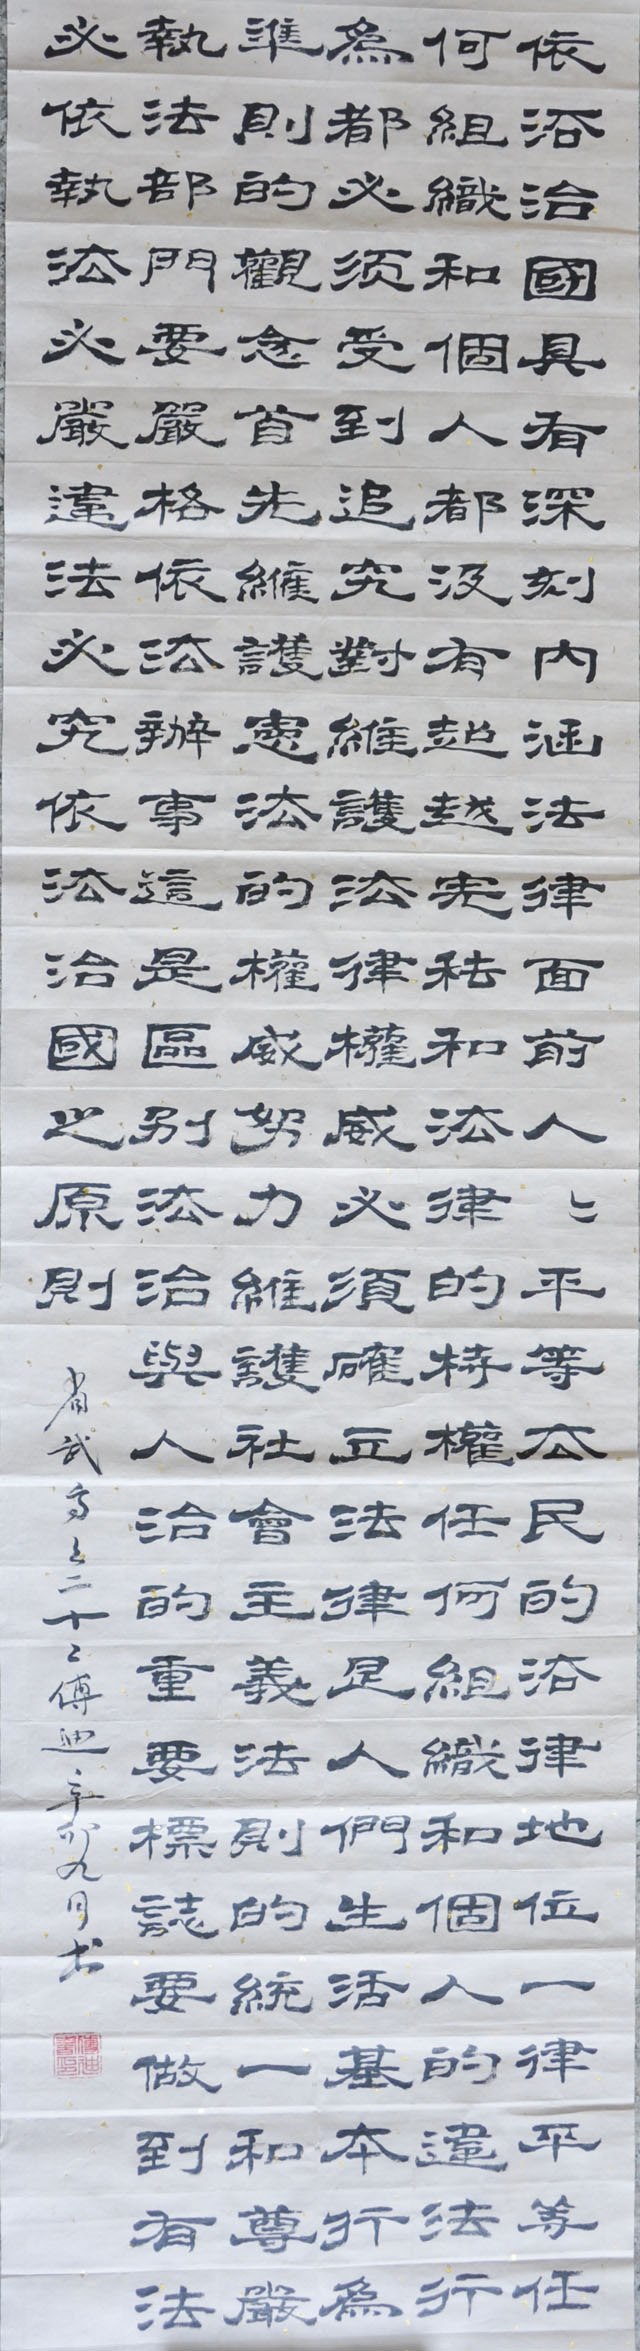 依法治國具有深刻内涵法律面前人〻平等公民的法律地位一律平等任
何組織和個人都没有超越宪法和法律的特權任何組織和個人的違法行
為都必须受到追究對維護法律權威必須確立法律是人們生活基本行為
準則的觀念首先維護憲法的權威努力維護社會主義法則的統一和尊嚴
執法部門要嚴格依法辦事這是區别法治與人治的重要標誌要做到有法
必依執法必嚴違法必究依法治國之原則
傅迪辛卯九月书